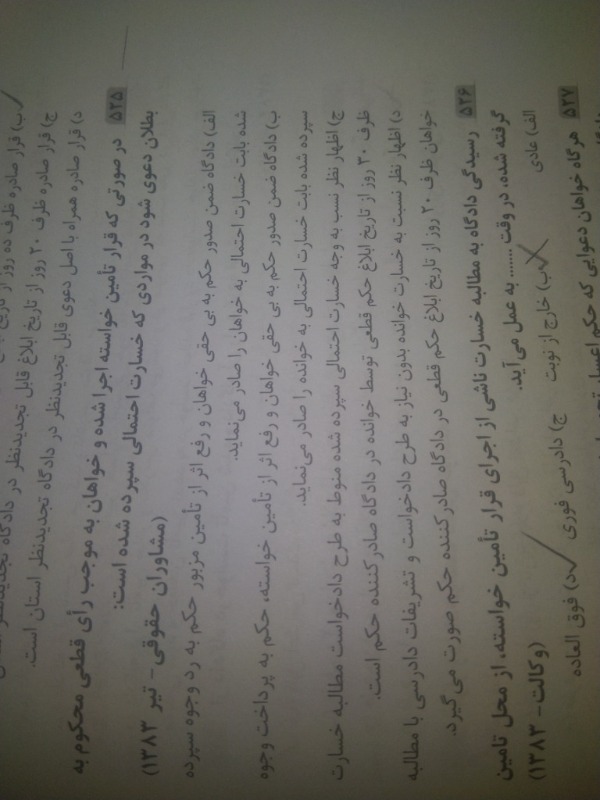 ب) قرار صادره ظرف ده روز از تاریخ
ج) قرار صادره ظرف ۲۰ روز از تاریخ ابلاغ قابل تجدیدنظر در دادگاه تجدیدنظر
د) قرار صادره همراه با اصل دعوی قابل تجدیدنظر در دادگاه تجدیدنظر استان است.
۵۲۵ در صورتی که قرار تأمین خواسته اجرا شده و خواهان به موجب رأی قطعی محکوم به
بطلان دعوی شود در مواردی که خسارت احتمالی سپرده شده است:
(مشاوران حقوقی - تیر ۱۳۸۳)
الف) دادگاه ضمن صدور حکم به بی حقی خواهان و رفع اثر از تأمین مزبور حکم به رد وجوه سپرده
شده بابت خسارت احتمالی به خواهان را صادر می‌نماید.
ب) دادگاه ضمن صدور حکم به بی حقی خواهان و رفع اثر از تأمین خواسته، حکم به پرداخت وجوه
سپرده شده بابت خسارت احتمالی به خوانده را صادر می‌نماید.
ج) اظهار نظر نسب به وجه خسارت احتمالی سپرده شده منوط به طرح دادخواست مطالبه خسارت
ظرف ۲۰ روز از تاریخ ابلاغ حکم قطعی توسط خوانده در دادگاه صادرکننده حکم است.
د) اظهار نظر نسبت به خسارت خوانده بدون نیاز به طرح دادخواست و تشریفات دادرسی با مطالبه
خواهان ظرف ۲۰ روز از تاریخ ابلاغ حکم قطعی در دادگاه صادرکننده حکم صورت می‌گیرد.
۵۲۶ رسیدگی دادگاه به مطالبه خسارت ناشی از اجرای قرار تأمین خواسته، از محل تامین
گرفته شده، در وقت ....... به عمل می‌آید.
(وکالت - ۱۳۸۳)
الف) عادی ب) خارج از نوبت ج) دادرسی فوری د) فوق العاده
۵۲۷ هرگاه خواهان دعوایی که حکم اعسار